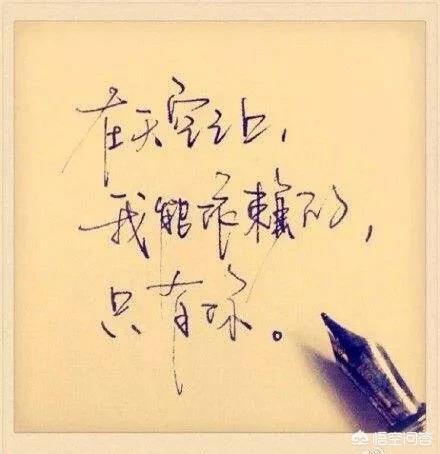 在天空之上，
我能依赖的，
只有你。
悟空问答